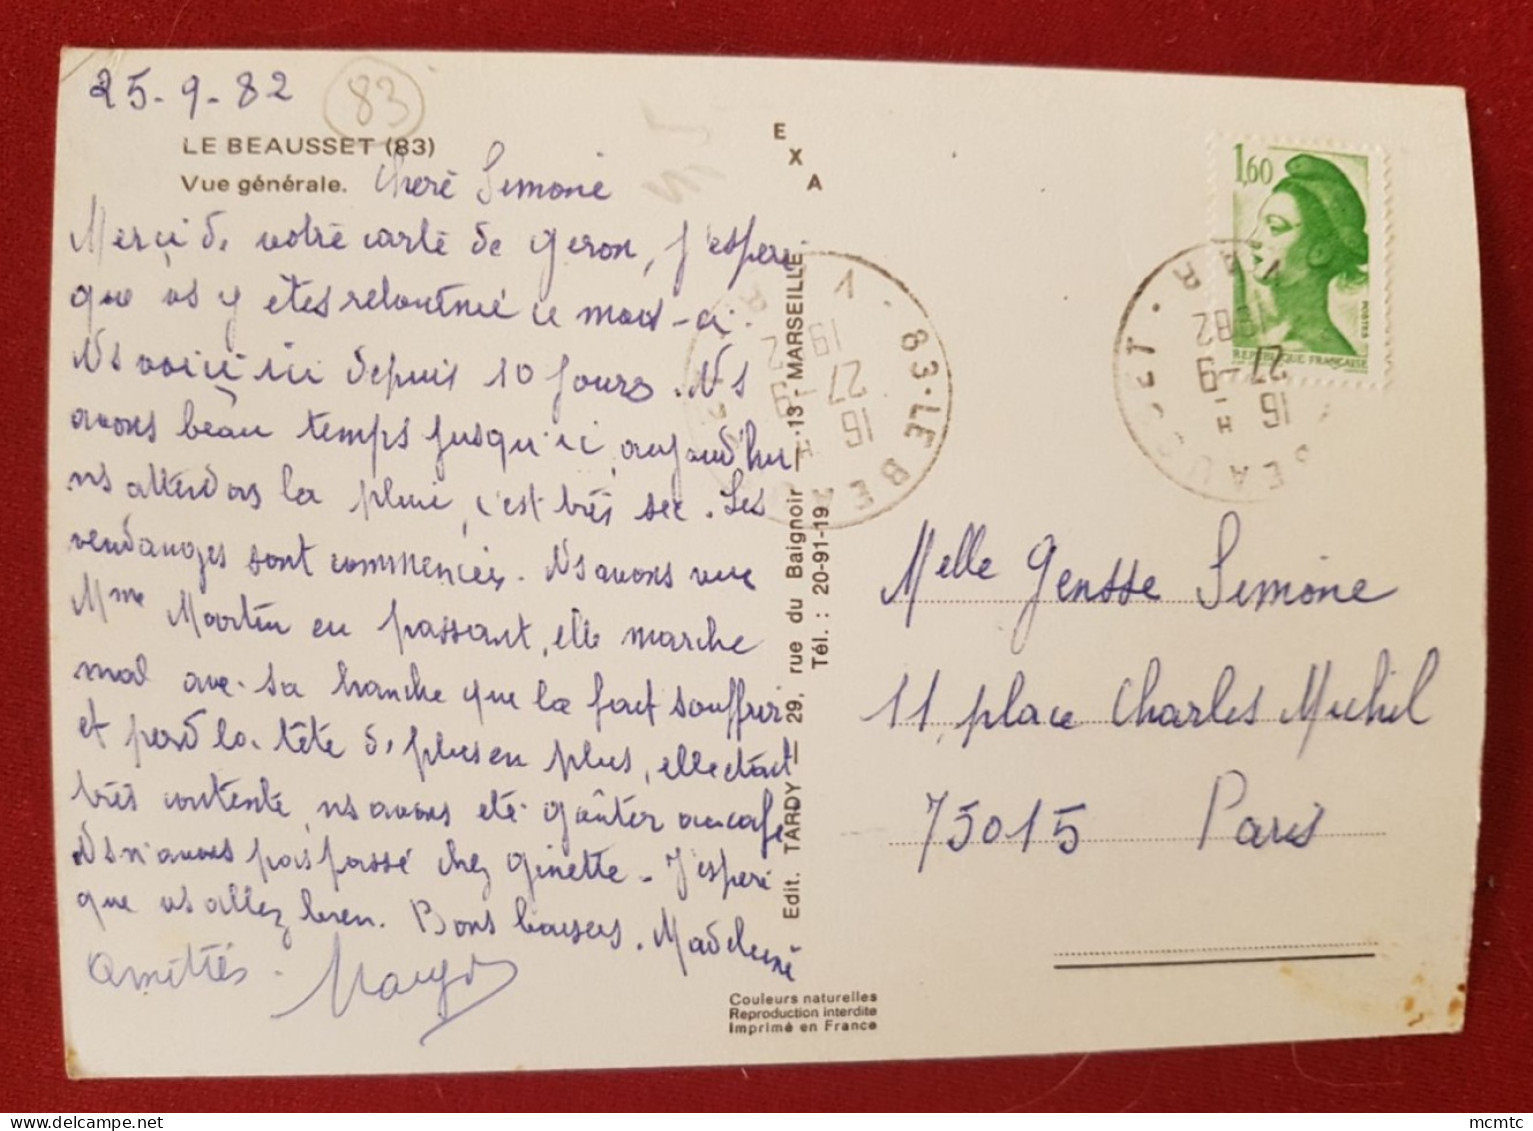 25-9-82
83
LE BEAUSSET (83)
Vue générale.
Chère Simone
Merci de votre carte de Geron, j'espère
que vs y êtes retournée ce mois-ci.
Ns voici ici depuis 10 jours. Ns
avons beau temps jusqu'ici, aujourd'hui
ns attendons la pluie, c'est très sec. Les
vendanges sont commencées. Ns avons vue
Mme Martin en passant, elle marche
mal avec sa hanche que la fait souffrir
et perd la tête de plus en plus, elle était
très contente, ns avons été goûter au café
Ns n'avons pas passé chez Ginette - J'espère
que vs allez bien. Bons baisers. Madeleine
amitiés.
E
X
A
Edit. TARDY - 29, rue du Baignoir - 13 - MARSEILLE
Tél. : 20-91-19
Couleurs naturelles
Reproduction interdite
Imprimé en France
83·LE BEAUSSET·VAR
16 H
27-9
1982
1,60
POSTES
REPUBLIQUE FRANÇAISE
83·LE BEAUSSET·VAR
16 H
27-9
1982
Melle Gensse Simone
11, place Charles Michel
75015 Paris
mcmtc